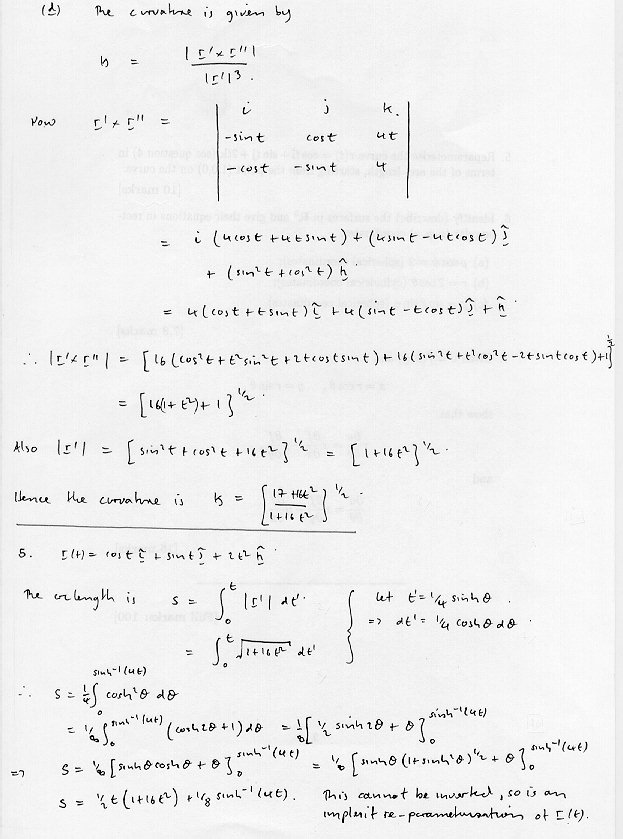 (d) The curvature is given by
κ = |r' × r''| / |r'|³.
Now r' × r'' = | i j k. |
| -sint cost 4t |
| -cost -sint 4 |
= i (4cost + 4tsint) + (4sint - 4tcost) ĵ
+ (sin²t + cos²t) k̂.
= 4(cost + tsint) î + 4(sint - tcost) ĵ + k̂.
∴ |r' × r''| = [16(cos²t + t²sin²t + 2tcostsint) + 16(sin²t + t²cos²t - 2tsintcost) + 1]^½
= [16(1 + t²) + 1]^1/2.
Also |r'| = [sin²t + cos²t + 16t²]^1/2 = [1 + 16t²]^1/2.
Hence the curvature is κ = [(17 + 16t²) / (1 + 16t²)]^1/2.
5. r(t) = cost î + sint ĵ + 2t² k̂.
The arclength is s = ∫₀^t |r'| dt'. { let t' = 1/4 sinhθ.
= ∫₀^t √(1 + 16t'²) dt' => dt' = 1/4 coshθ dθ.
∴ s = 1/4 ∫₀^sinh⁻¹(4t) cosh²θ dθ
= 1/8 ∫₀^sinh⁻¹(4t) (cosh2θ + 1) dθ = 1/8 [1/2 sinh2θ + θ]₀^sinh⁻¹(4t)
=> s = 1/8 [sinhθcoshθ + θ]₀^sinh⁻¹(4t) = 1/8 [sinhθ (1 + sinh²θ)^1/2 + θ]₀^sinh⁻¹(4t)
s = 1/2 t (1 + 16t²) + 1/8 sinh⁻¹(4t). This cannot be inverted, so is an
implicit re-parameterisation of r(t).